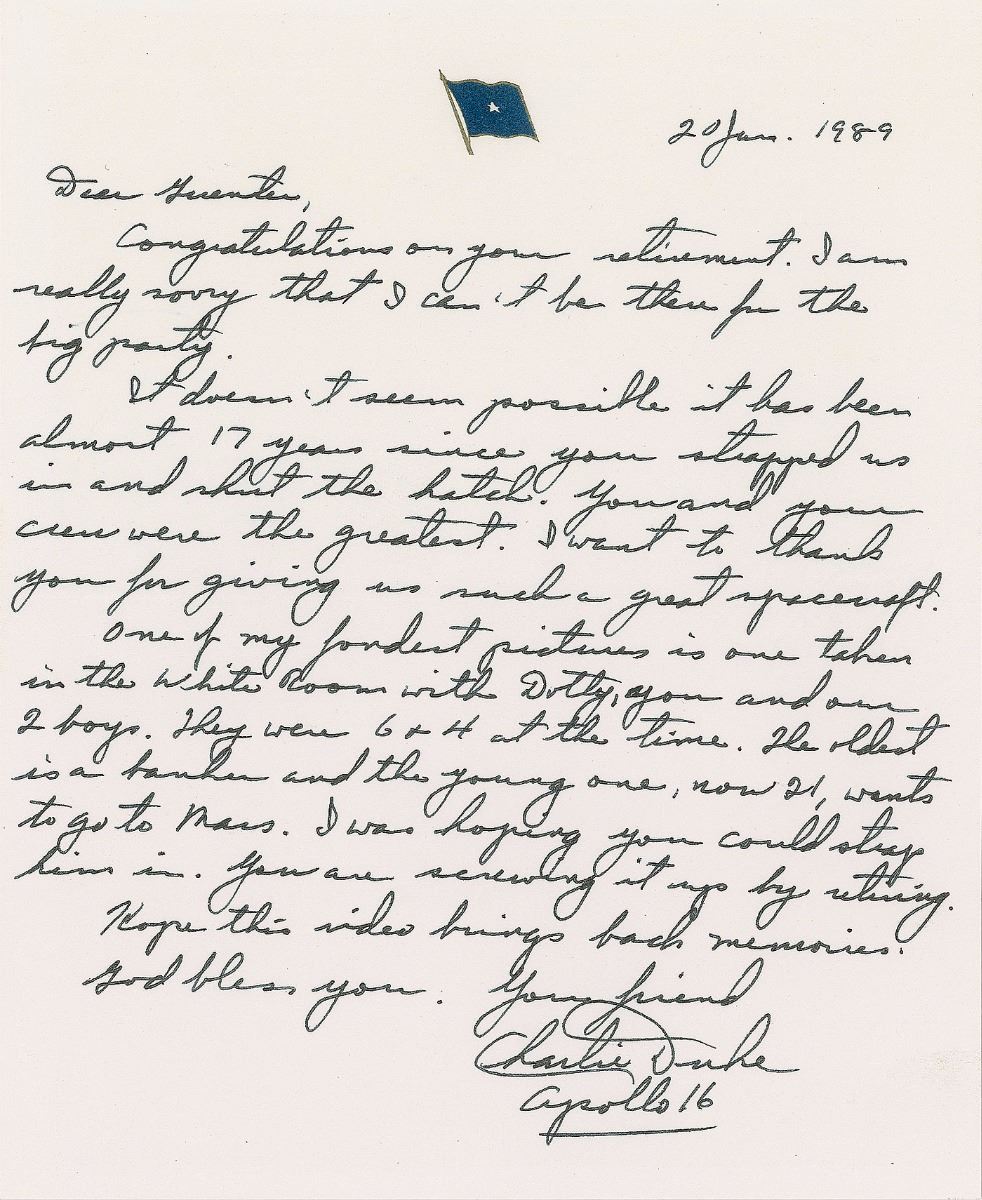 20 Jan. 1989
Dear Guenter,
Congratulations on your retirement. I am
really sorry that I can't be there for the
big party.
It doesn't seem possible it has been
almost 17 years since you strapped us
in and shut the hatch. You and your
crew were the greatest. I want to thank
you for giving us such a great spacecraft.
One of my fondest pictures is one taken
in the White Room with Dotty, you and our
2 boys. They were 6 & 4 at the time. The oldest
is a banker and the young one, now 21, wants
to go to Mars. I was hoping you could strap
him in. You are screwing it up by retiring.
Hope this video brings back memories.
God bless you. Your friend
Charlie Duke
Apollo 16